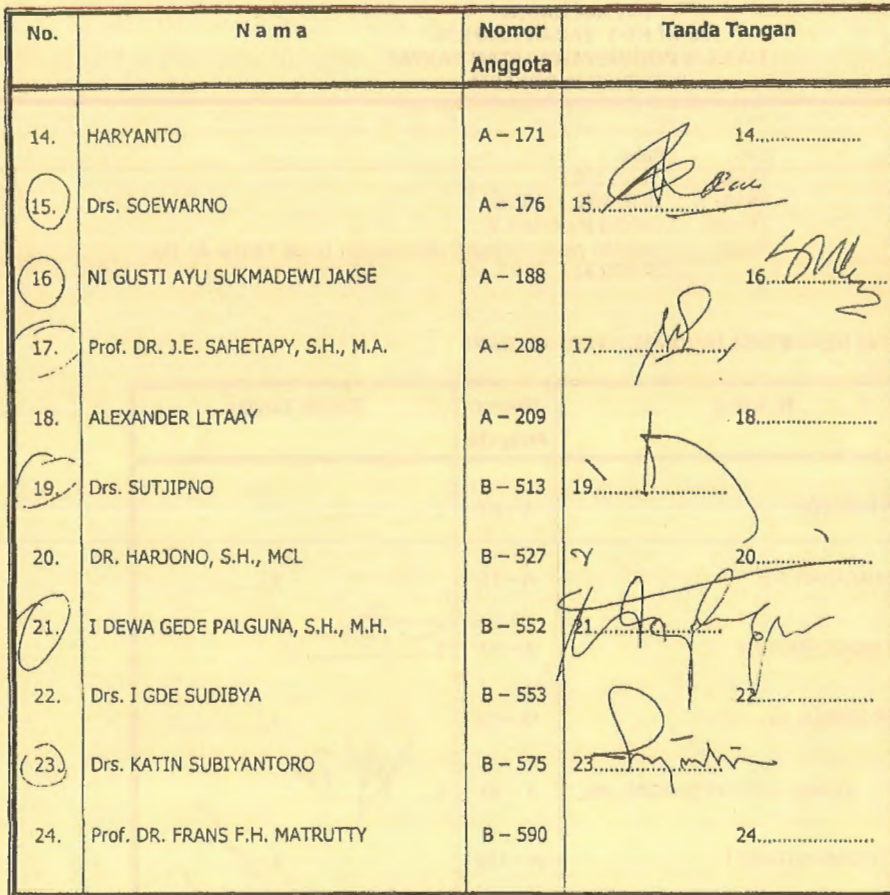 No. N a m a Nomor Anggota Tanda Tangan
14. HARYANTO A – 171 14.....................
15. Drs. SOEWARNO A – 176 15.....................
16 NI GUSTI AYU SUKMADEWI JAKSE A – 188 16.....................
17. Prof. DR. J.E. SAHETAPY, S.H., M.A. A – 208 17.....................
18. ALEXANDER LITAAY A – 209 18.....................
19. Drs. SUTJIPNO B – 513 19.....................
20. DR. HARJONO, S.H., MCL B – 527 20.....................
21. I DEWA GEDE PALGUNA, S.H., M.H. B – 552 21.....................
22. Drs. I GDE SUDIBYA B – 553 22.....................
23. Drs. KATIN SUBIYANTORO B – 575 23.....................
24. Prof. DR. FRANS F.H. MATRUTTY B – 590 24.....................